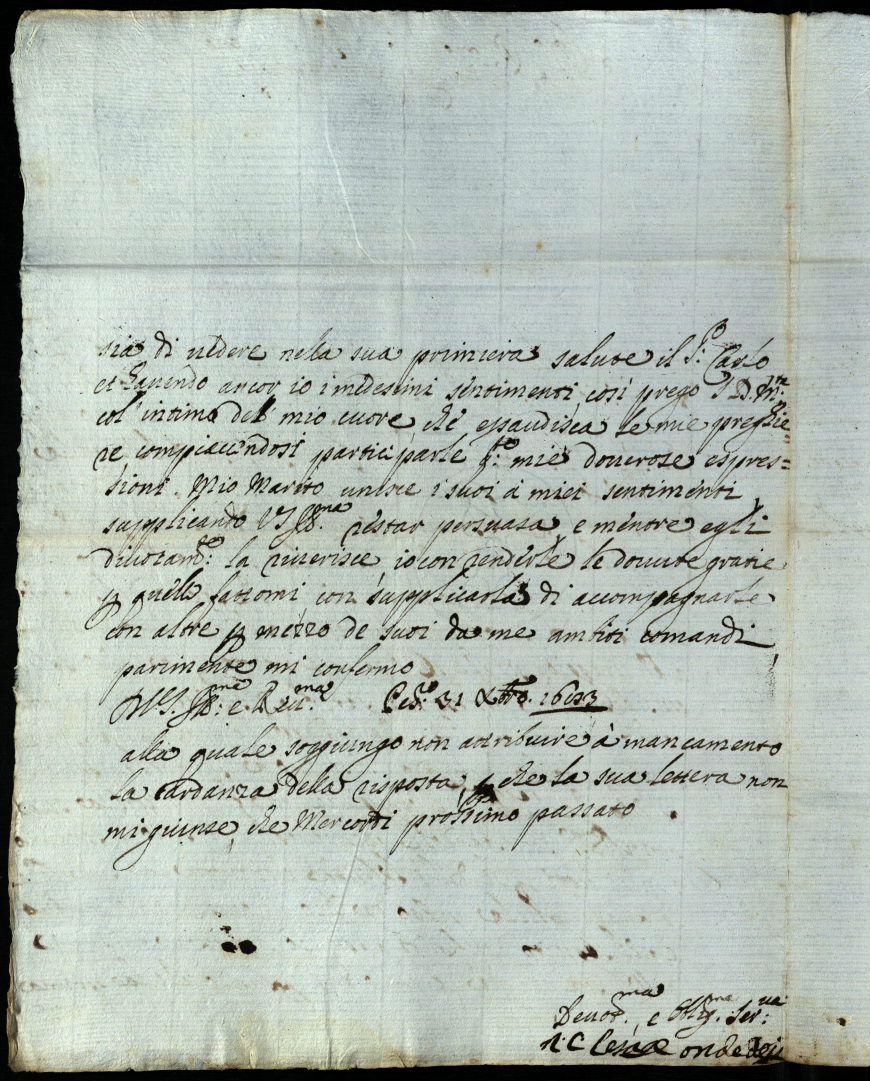 sia di uedere nella sua primiera salute il S.r Carlo
et hauendo ancor io i medesimi sentimenti così prego
col intimo del mio cuore che essaudisca le mie preghie=
re compiacendosi participarle q.te mie douerose espres=
sioni. Mio Marito unisce i suoi à miei sentimenti
supplicando V S Ill.ma restar persuasa e mentre egli
diuotam.te la riuerisce io con renderle le douute gratie
p quelle fattomi con supplicarla di accompagnarle
con altre p mezzo de suoi da me ambiti comandi
parimente mi confermo
Di V.S. Ill.ma e Reu.ma Pes.o 31 Xbre. 1693
alla quale soggiungo non attribuire à mancamento
la tardanza della risposta, p che la sua lettera non
mi giunse che Mercordi prossimo passato
Deuot.ma e Oblig.ma Ser.ua
ondedei